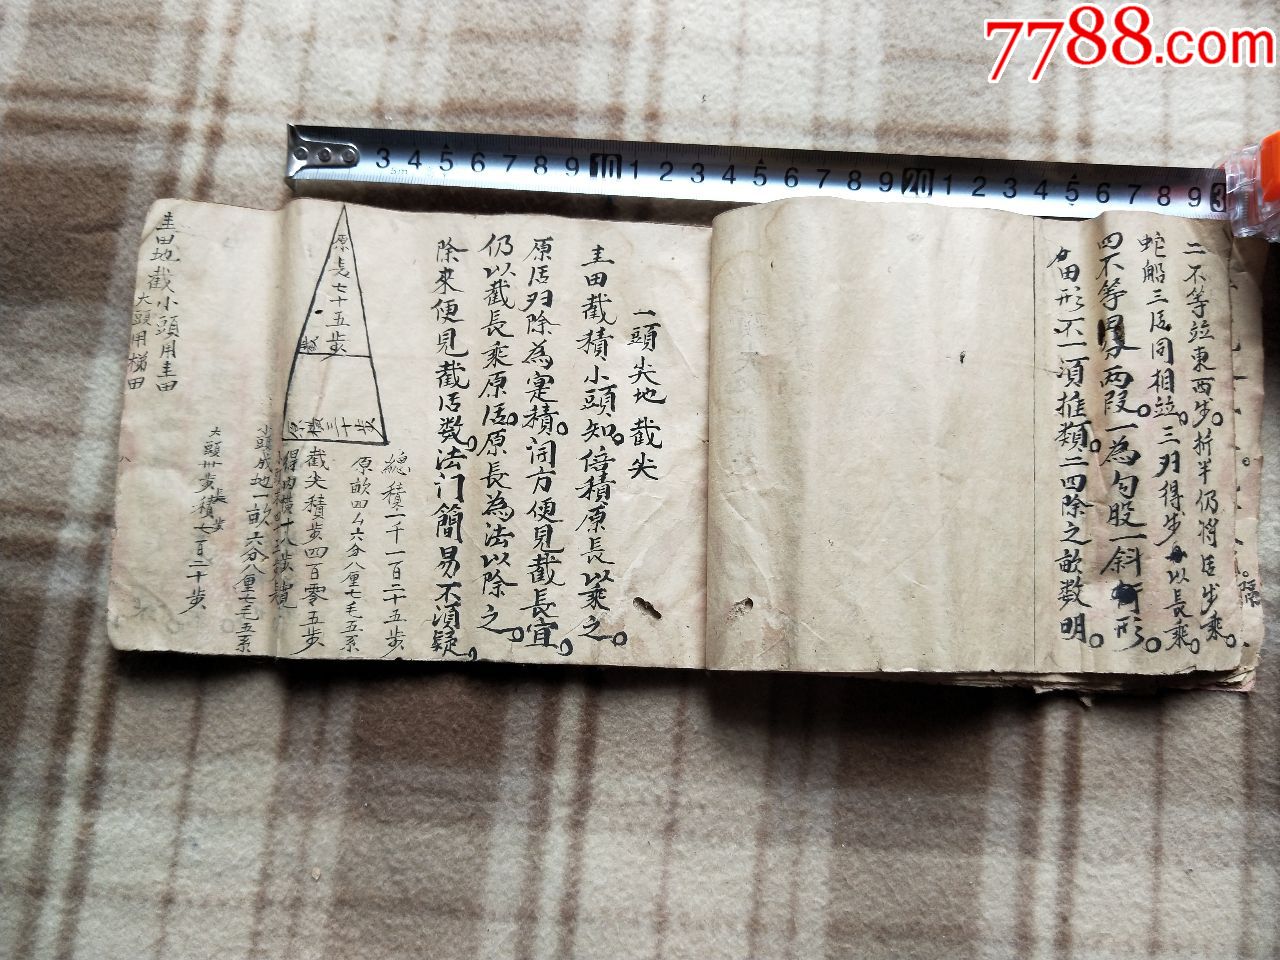 7788.com
3 4 5 6 7 8 9 10 1 2 3 4 5 6 7 8 9 20 1 2 3 4 5 6 7 8 9 3
二不等並東西步折半仍將活步乘。
蛇船三活同相並。三歸得步以長乘。
四不等田分兩段。一為勾股一斜形。
田形不一須推類。二四除之畝数明。
一頭尖地截尖
圭田截積小頭知。倍積原長以乘之。
原活歸除為寔積。開方便見截長宜。
仍以截長乘原活。原長為法以除之。
除來便見截活数。法门簡易不須疑。
原長七十五步
原橫三十步
總積一千一百二十五步
原畝四畝六分八厘七毛五系
截尖積步四百零五步
小頭成地一畝六分八厘七毛五系
大頭積七百二十步
圭田地截小頭用圭田
大頭用梯田